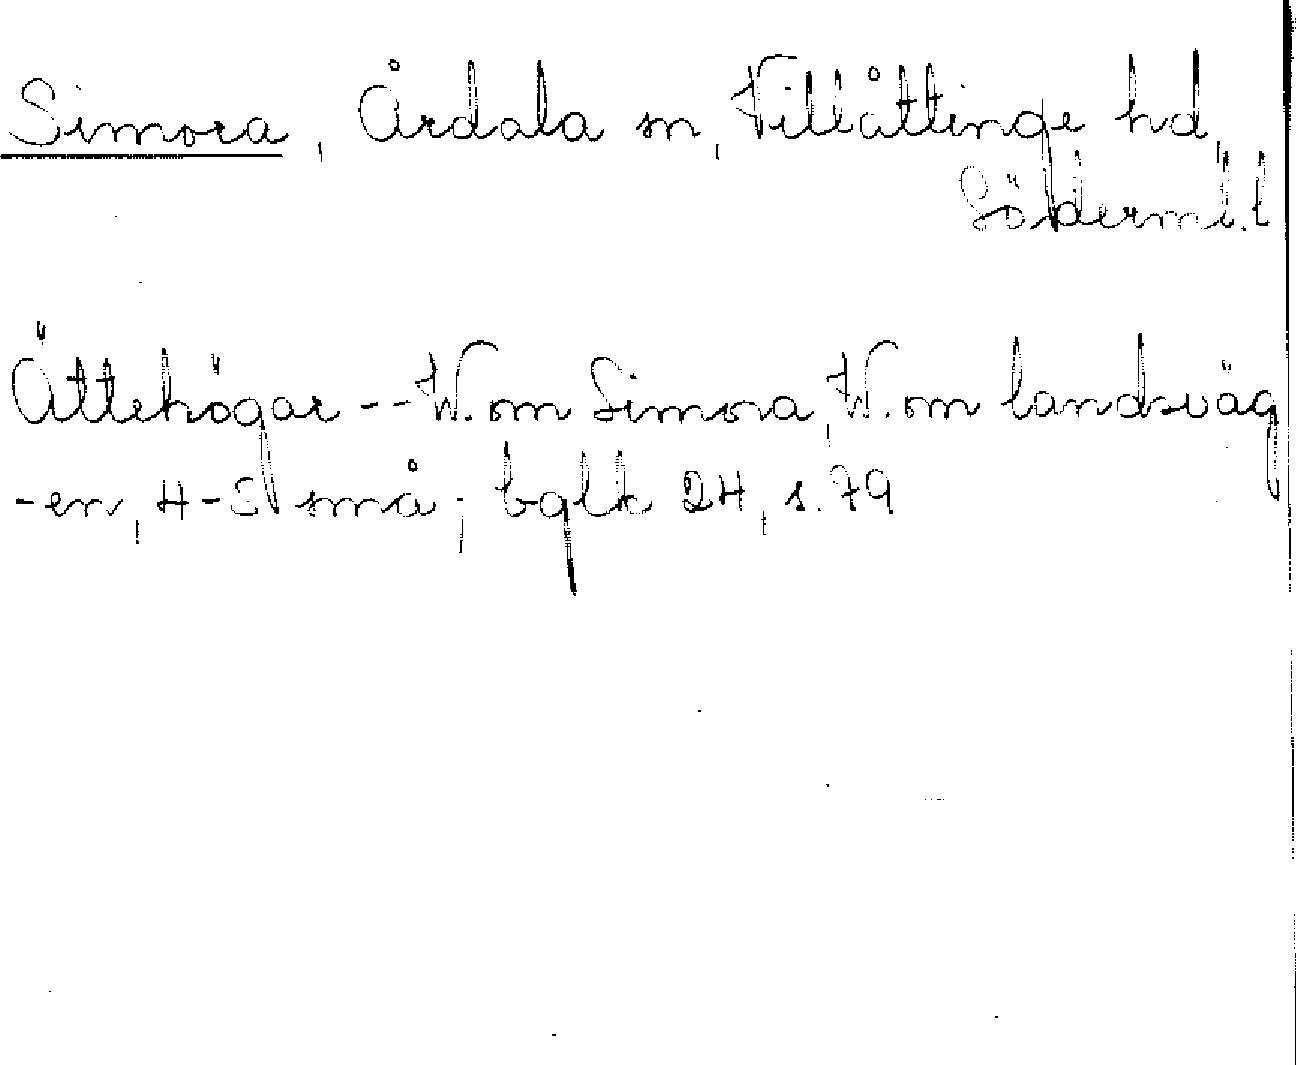 Simora, Årdala sn, Villåttinge hd,
Söderml. l
Ättehögar -- V. om Simora, V. om landsväg
-en, 4-5 små; bglk 24, s. 79